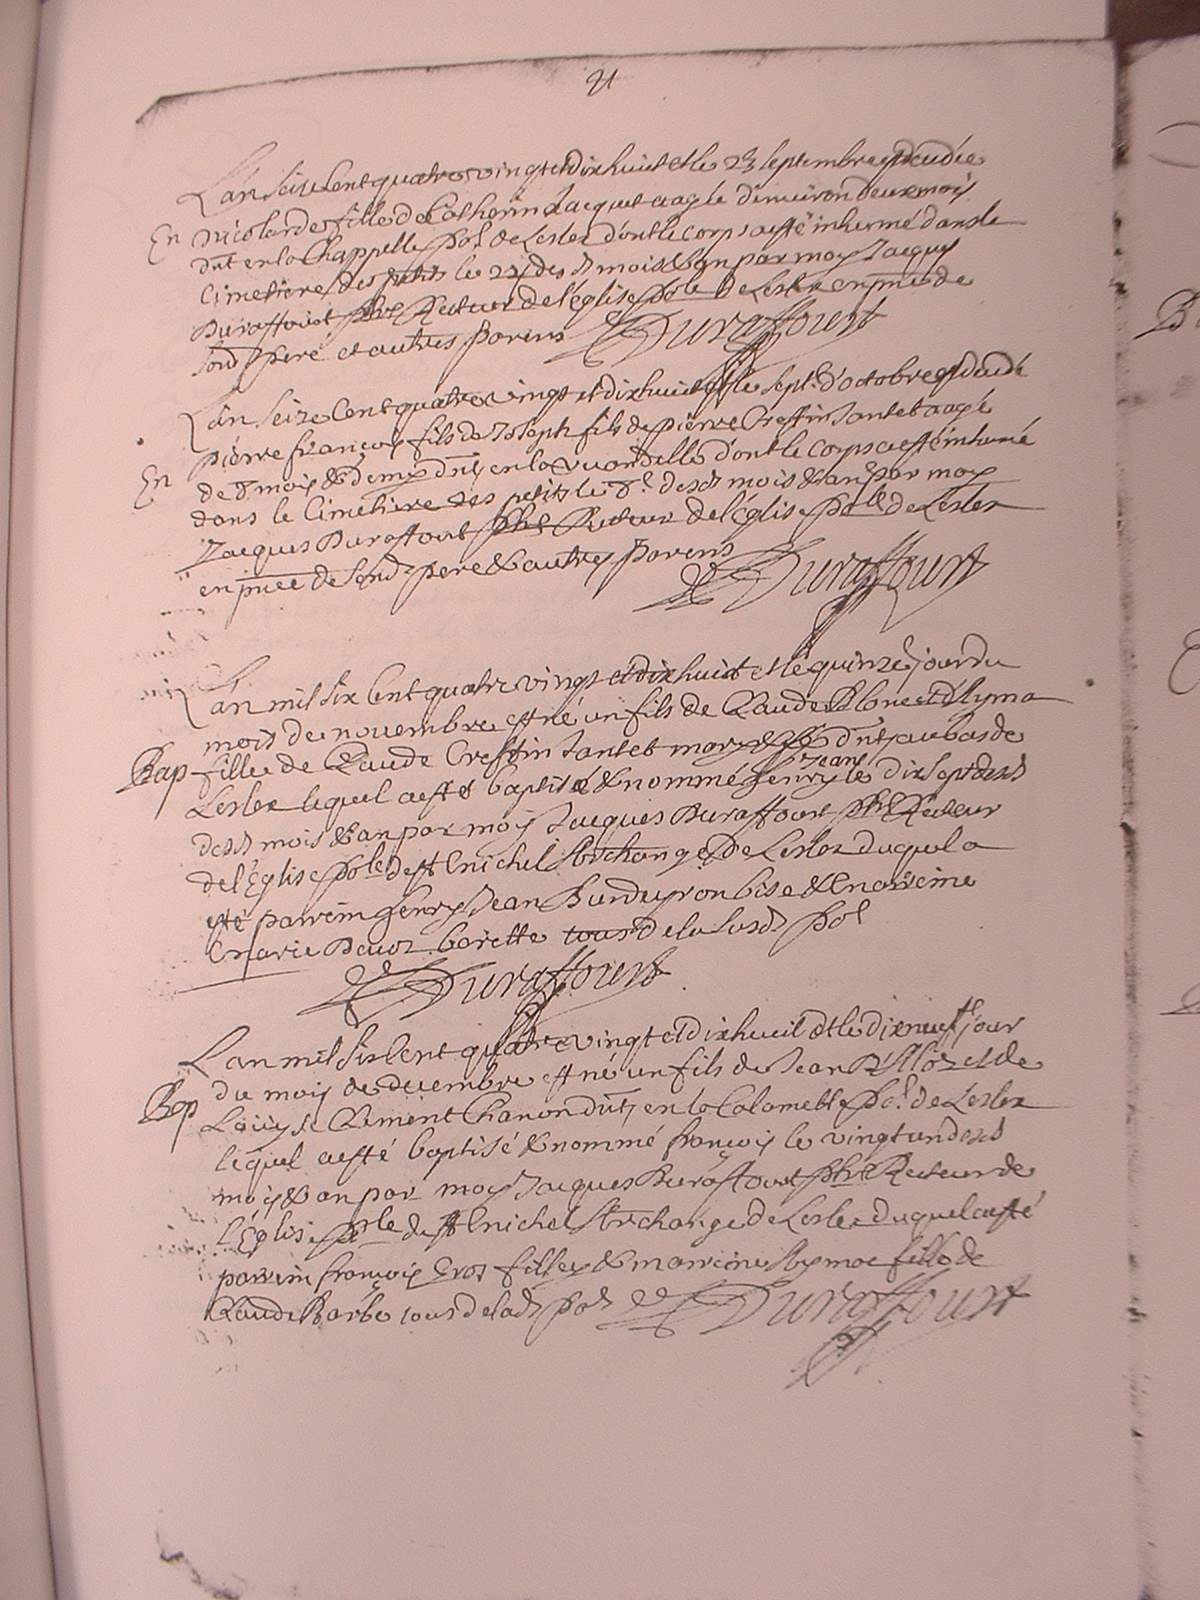 21
L'an seize cent quatre vingt et dix huict et le 23 septembre est decedée
En Nicolarde fille de Catherin Jacquet aagée d'environ deux mois
dmt en la Chappelle pol de Lesler dont le corps a esté inhumé dans le
Cimetiere des petits le 24 des ds mois & an par moy Jacques
Duraffourt pbre Recteur de l'église polle de Lesler en pnce de
sond pere et autres parens Duraffourt
L'an seize cent quatre vingt et dix huict et le sept d'octobre est decedé
pierre françois fils de Joseph fils de pierre Crestin Jantet aagé
En de 8 mois & demy dmt en la dont le corps a esté inhumé
dans le Cimetiere des petits le 8e desd mois & an par moy
Jacques Duraffourt pbre Recteur de l'église polle de Lesler
en pnce de sond pere & autres parens Duraffourt
L'an mil six cent quatre vingt et dix huict et le quinze jour du
mois de novembre est né un fils de Claude et d'Aymа
Bap fille de Claude Crestin Jantet dmt au bas de
Lesler lequel a esté baptisé & nommé henry Jean le dix sept desd
desd mois & an par moy Jacques Duraffourt pbre Recteur
de l'Eglise polle de st Michel Archange de Lesler duquel a
esté parrein henry Jean & marreine
Marie tous de la susd pol
Duraffourt
L'an mil six cent quatre vingt et dix huict et le dix neuf jour
du mois de decembre est né un fils de Jean et de
Bap Louyse Clement Chanon dmt en la Calomette pol de Lesler
lequel a esté baptisé & nommé françois le vingt un desd
mois & an par moy Jacques Duraffourt pbre Recteur de
l'Eglise polle de st Michel Archange de Lesler duquel a esté
parrein françois & marreine Aymae fille de
Claude Barbe tous de lad pol Duraffourt